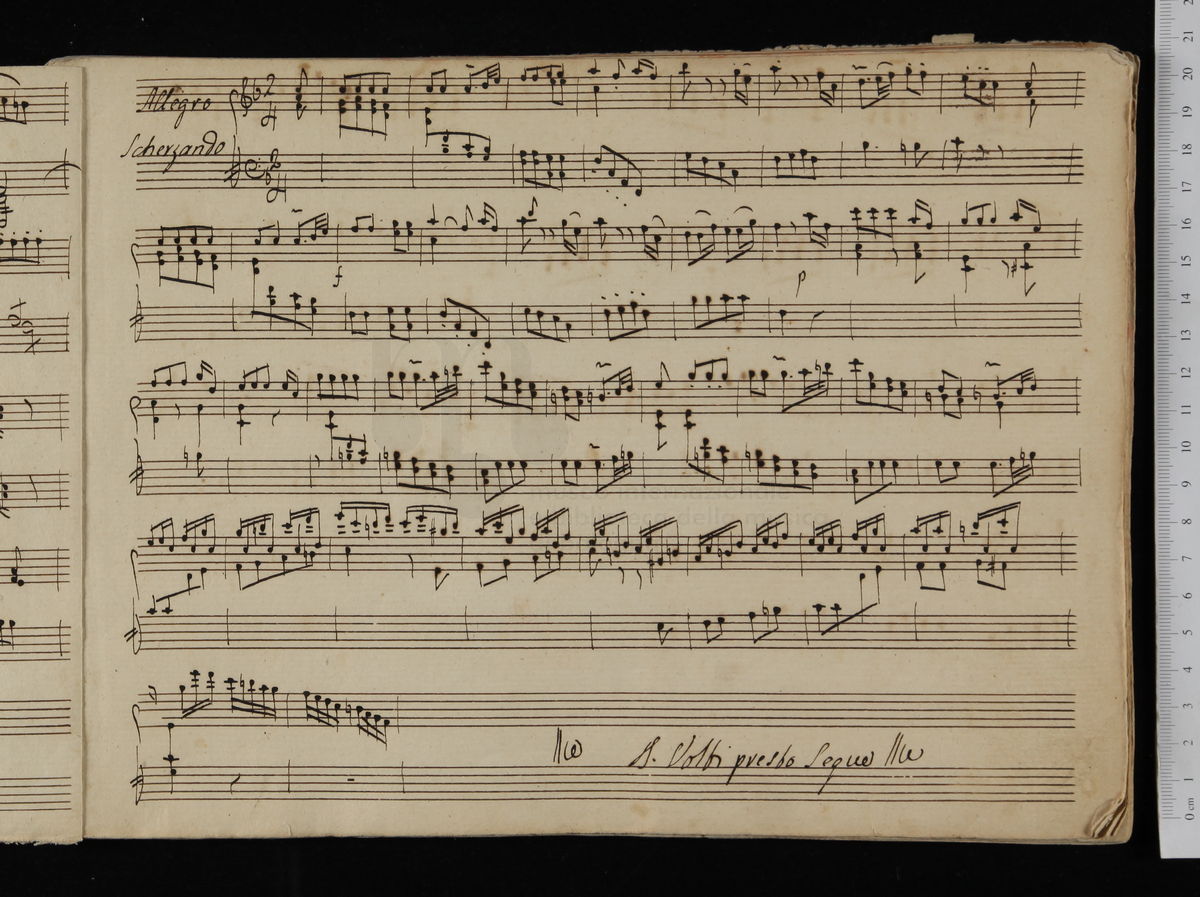 Allegro
Scherzando
2
4
2
4
f
p
museo internazionale
biblioteca della musica
Volti presto Segue
0 cm 1 2 3 4 5 6 7 8 9 10 11 12 13 14 15 16 17 18 19 20 21